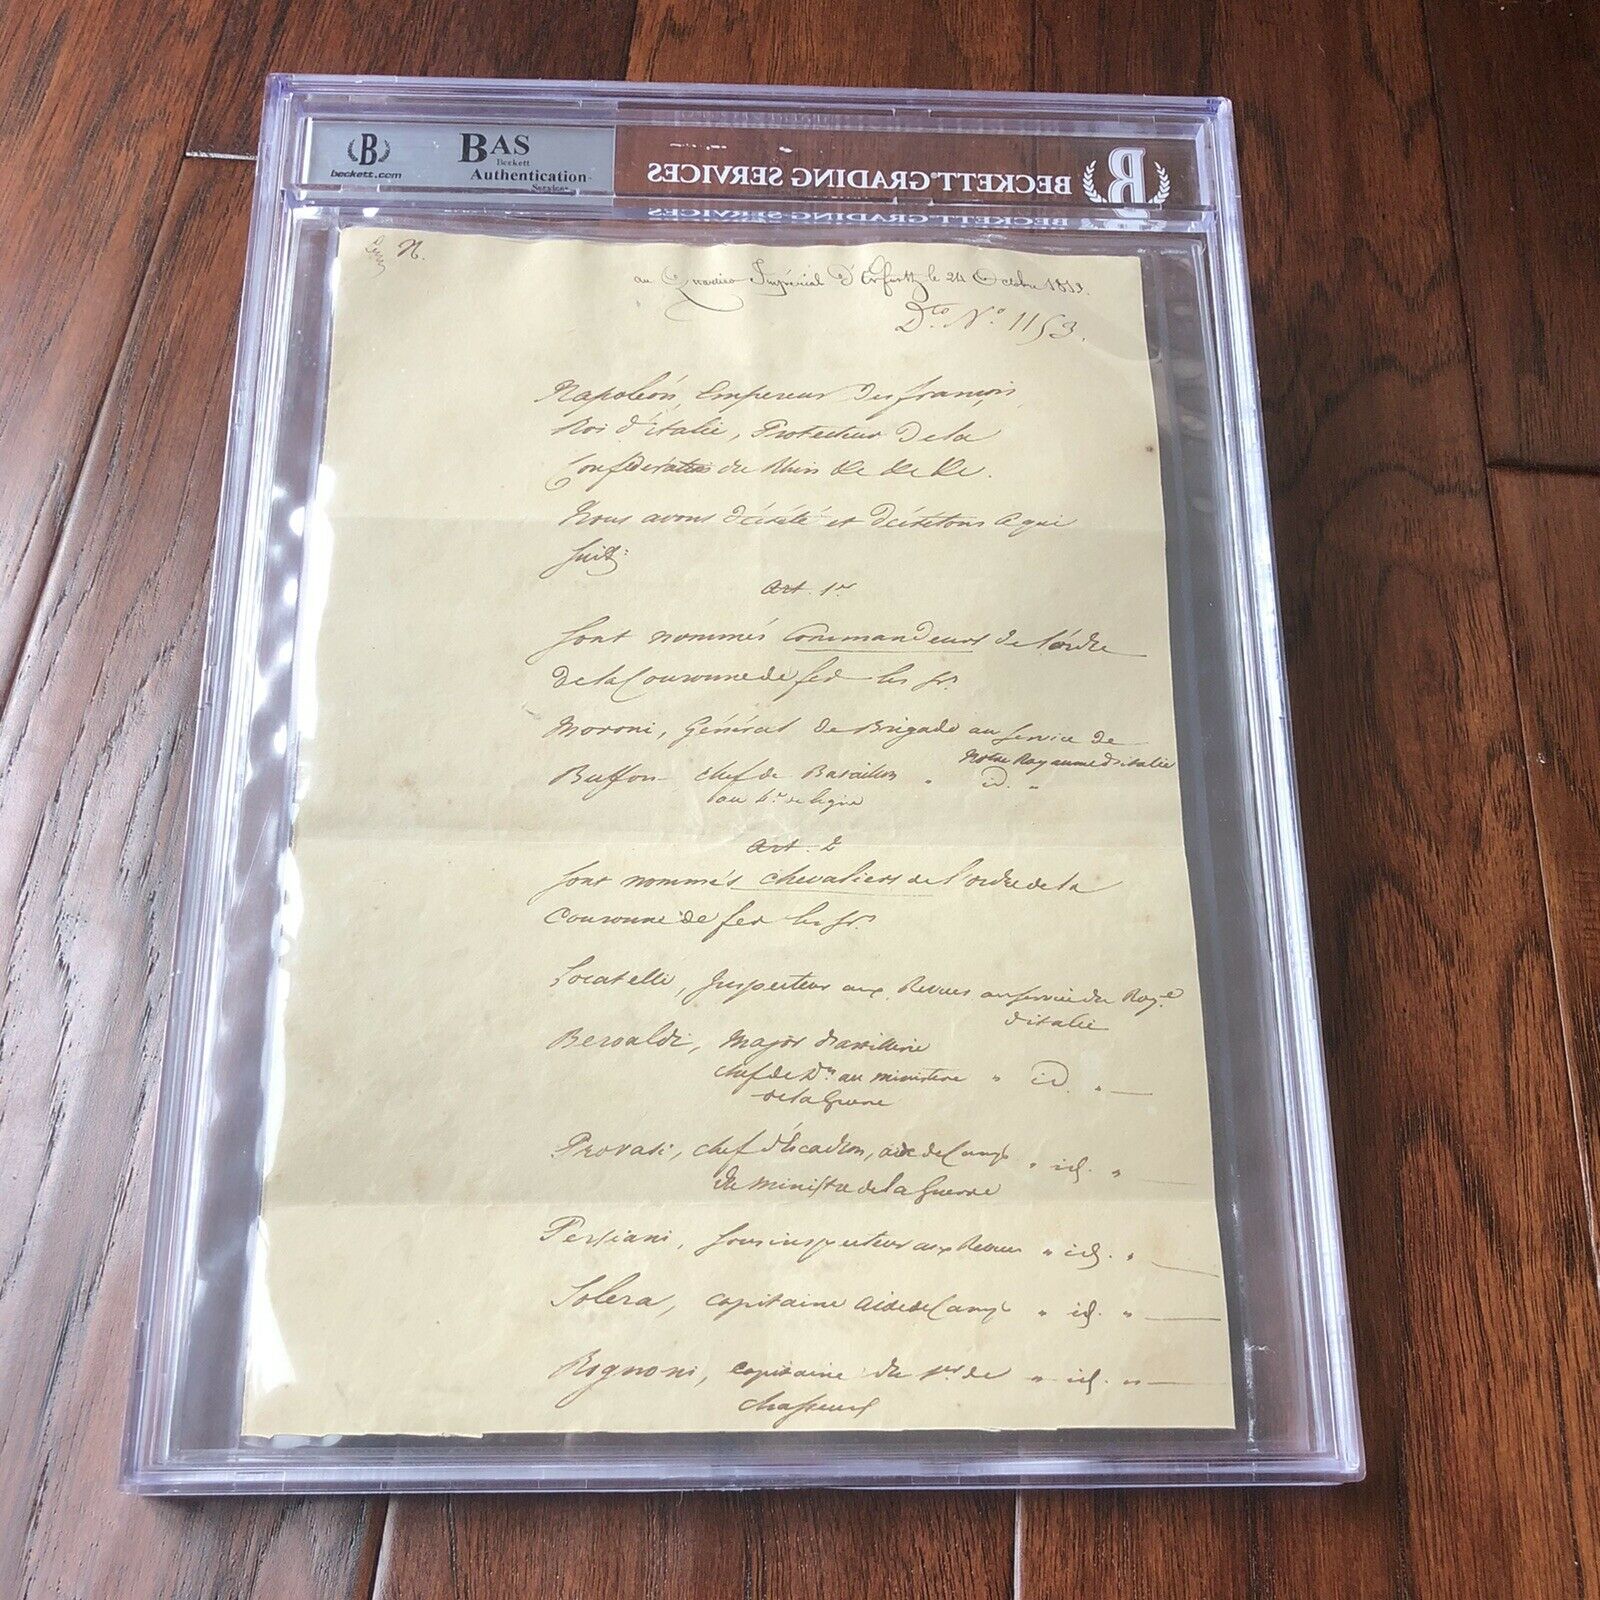 beckett.com
BAS
Beckett
Authentication
Services
BECKETT GRADING SERVICES
BECKETT GRADING SERVICES
N.
au Quartier Impérial d'Erfurth le 24 Octobre 1813.
Dto. No. 1153.
Napoléon, Empereur des français,
Roi d'italie, Protecteur de la
Confédération du Rhin &c &c &c.
Nous avons décrété et décrétons ce qui
suit:
Art. 1er
Sont nommés Commandeurs de l'ordre
de la Couronne de fer les Srs.
Moroni, Général de Brigade au service de
Notre Royaume d'italie
Buffon chef de Bataillon " id. "
au de ligne
Art. 2
Sont nommés chevaliers de l'ordre de la
Couronne de fer les Srs.
Locatelli, Inspecteur aux Revues au service du Roy.e
d'italie
Beroaldi, Major d'artillerie
chef de Don au ministère " id. "
de la Guerre
Provasi, chef d'Escadron, aide de Camp " id. "
du ministre de la Guerre
Persiani, sous inspecteur aux Revues " id. "
Solera, capitaine aide de Camp " id. "
Rognoni, capitaine du 1er de " id. "
chasseurs